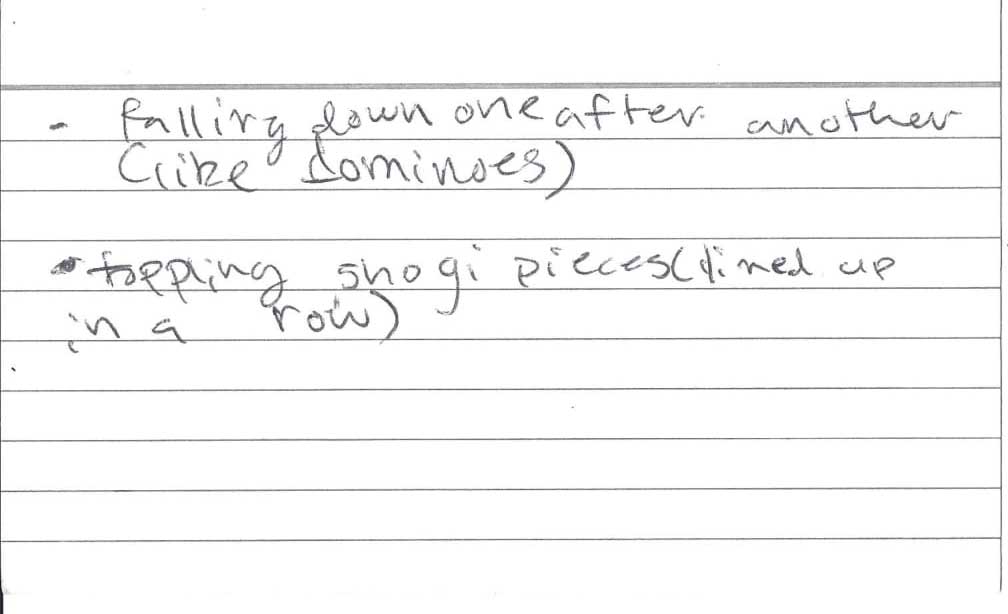 - falling down one after another
(like dominoes)
• toppling shogi pieces (lined up
in a row)